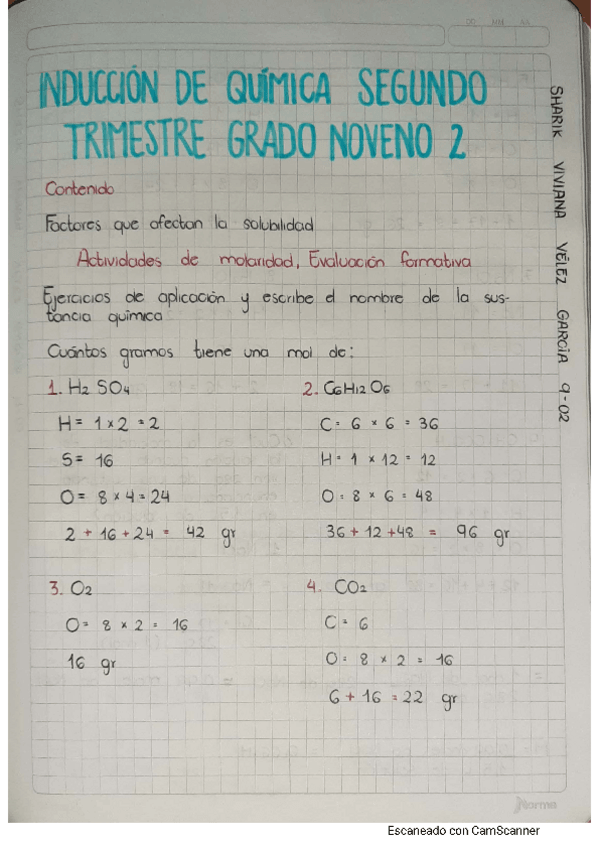 INDUCCIÓN DE QUÍMICA SEGUNDO
TRIMESTRE GRADO NOVENO 2
SHARIK VIVIANA VÉLEZ GARCÍA 9-02
Contenido
Factores que afectan la solubilidad
Actividades de molaridad, Evaluación formativa
Ejercicios de aplicación y escribe el nombre de la sus-
tancia química
Cuántos gramos tiene una mol de:
1. H2 SO4
H = 1 x 2 = 2
S = 16
O = 8 x 4 = 24
2 + 16 + 24 = 42 gr
2. C6H12O6
C = 6 x 6 = 36
H = 1 x 12 = 12
O = 8 x 6 = 48
36 + 12 + 48 = 96 gr
3. O2
O = 8 x 2 = 16
16 gr
4. CO2
C = 6
O = 8 x 2 = 16
6 + 16 = 22 gr
Norma
Escaneado con CamScanner